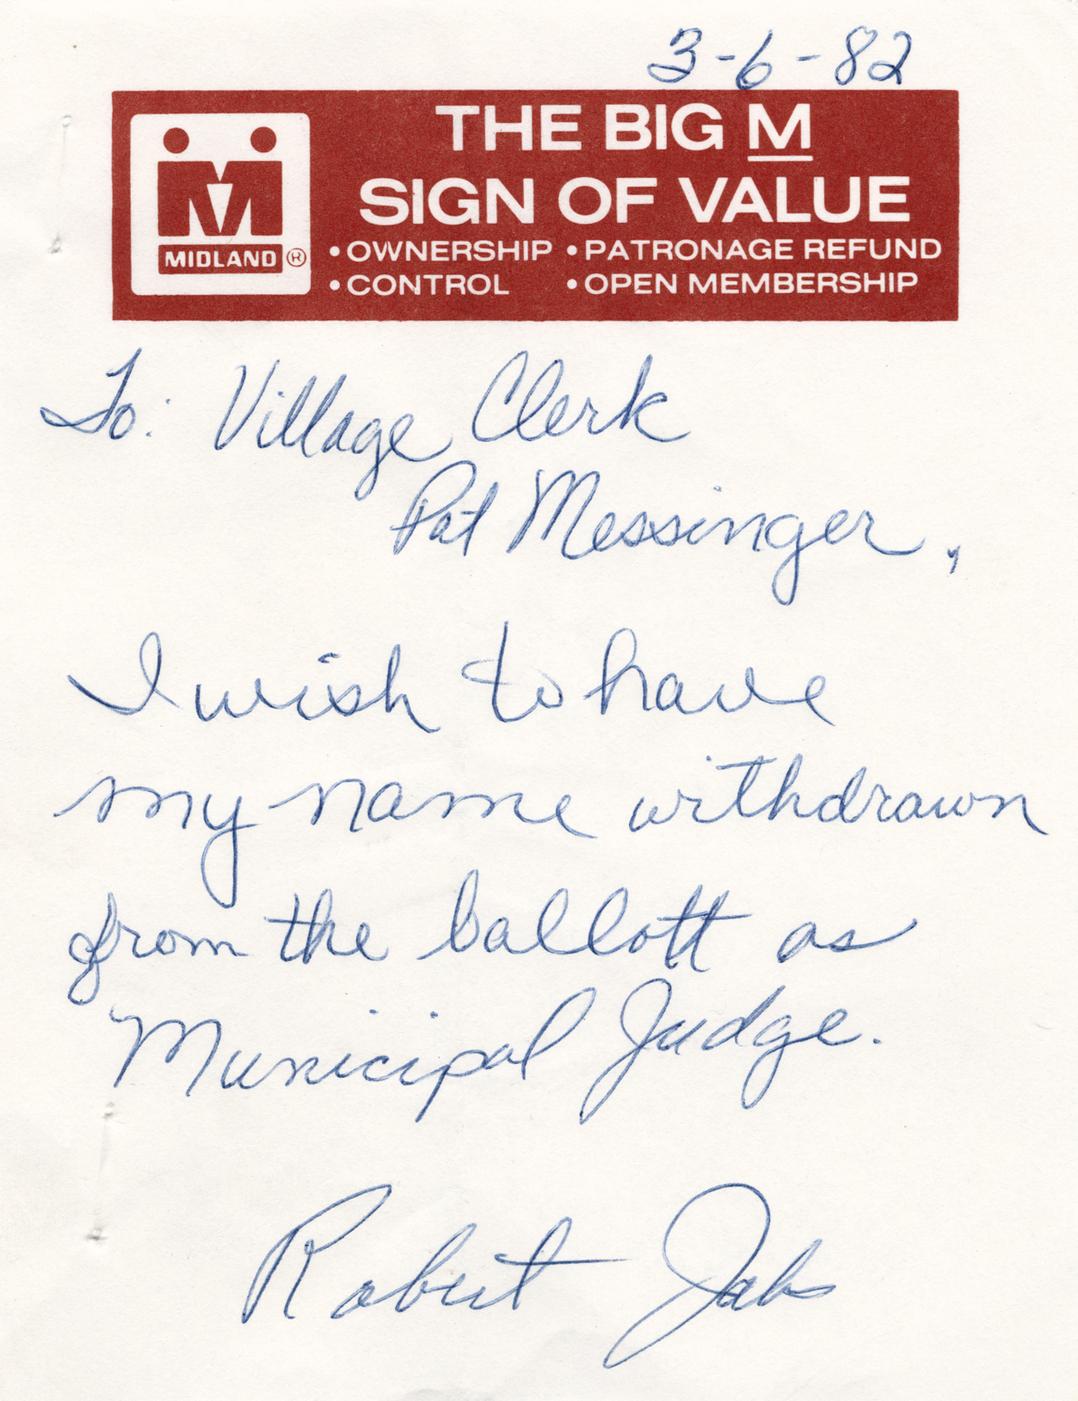 3-6-82
THE BIG M
SIGN OF VALUE
MIDLAND ®
• OWNERSHIP • PATRONAGE REFUND
• CONTROL • OPEN MEMBERSHIP
To: Village Clerk
Pat Messinger,
I wish to have
my name withdrawn
from the ballott as
Municipal Judge.
Robert Jabs